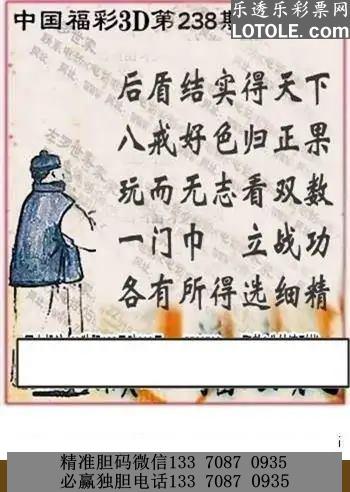 中国福彩3D第238期
乐透乐彩票网
LOTOLE.COM
后盾结实得天下
八戒好色归正果
玩而无志看双数
一门巾 立战功
各有所得选细精
精准胆码微信133 7087 0935
必赢独胆电话133 7087 0935